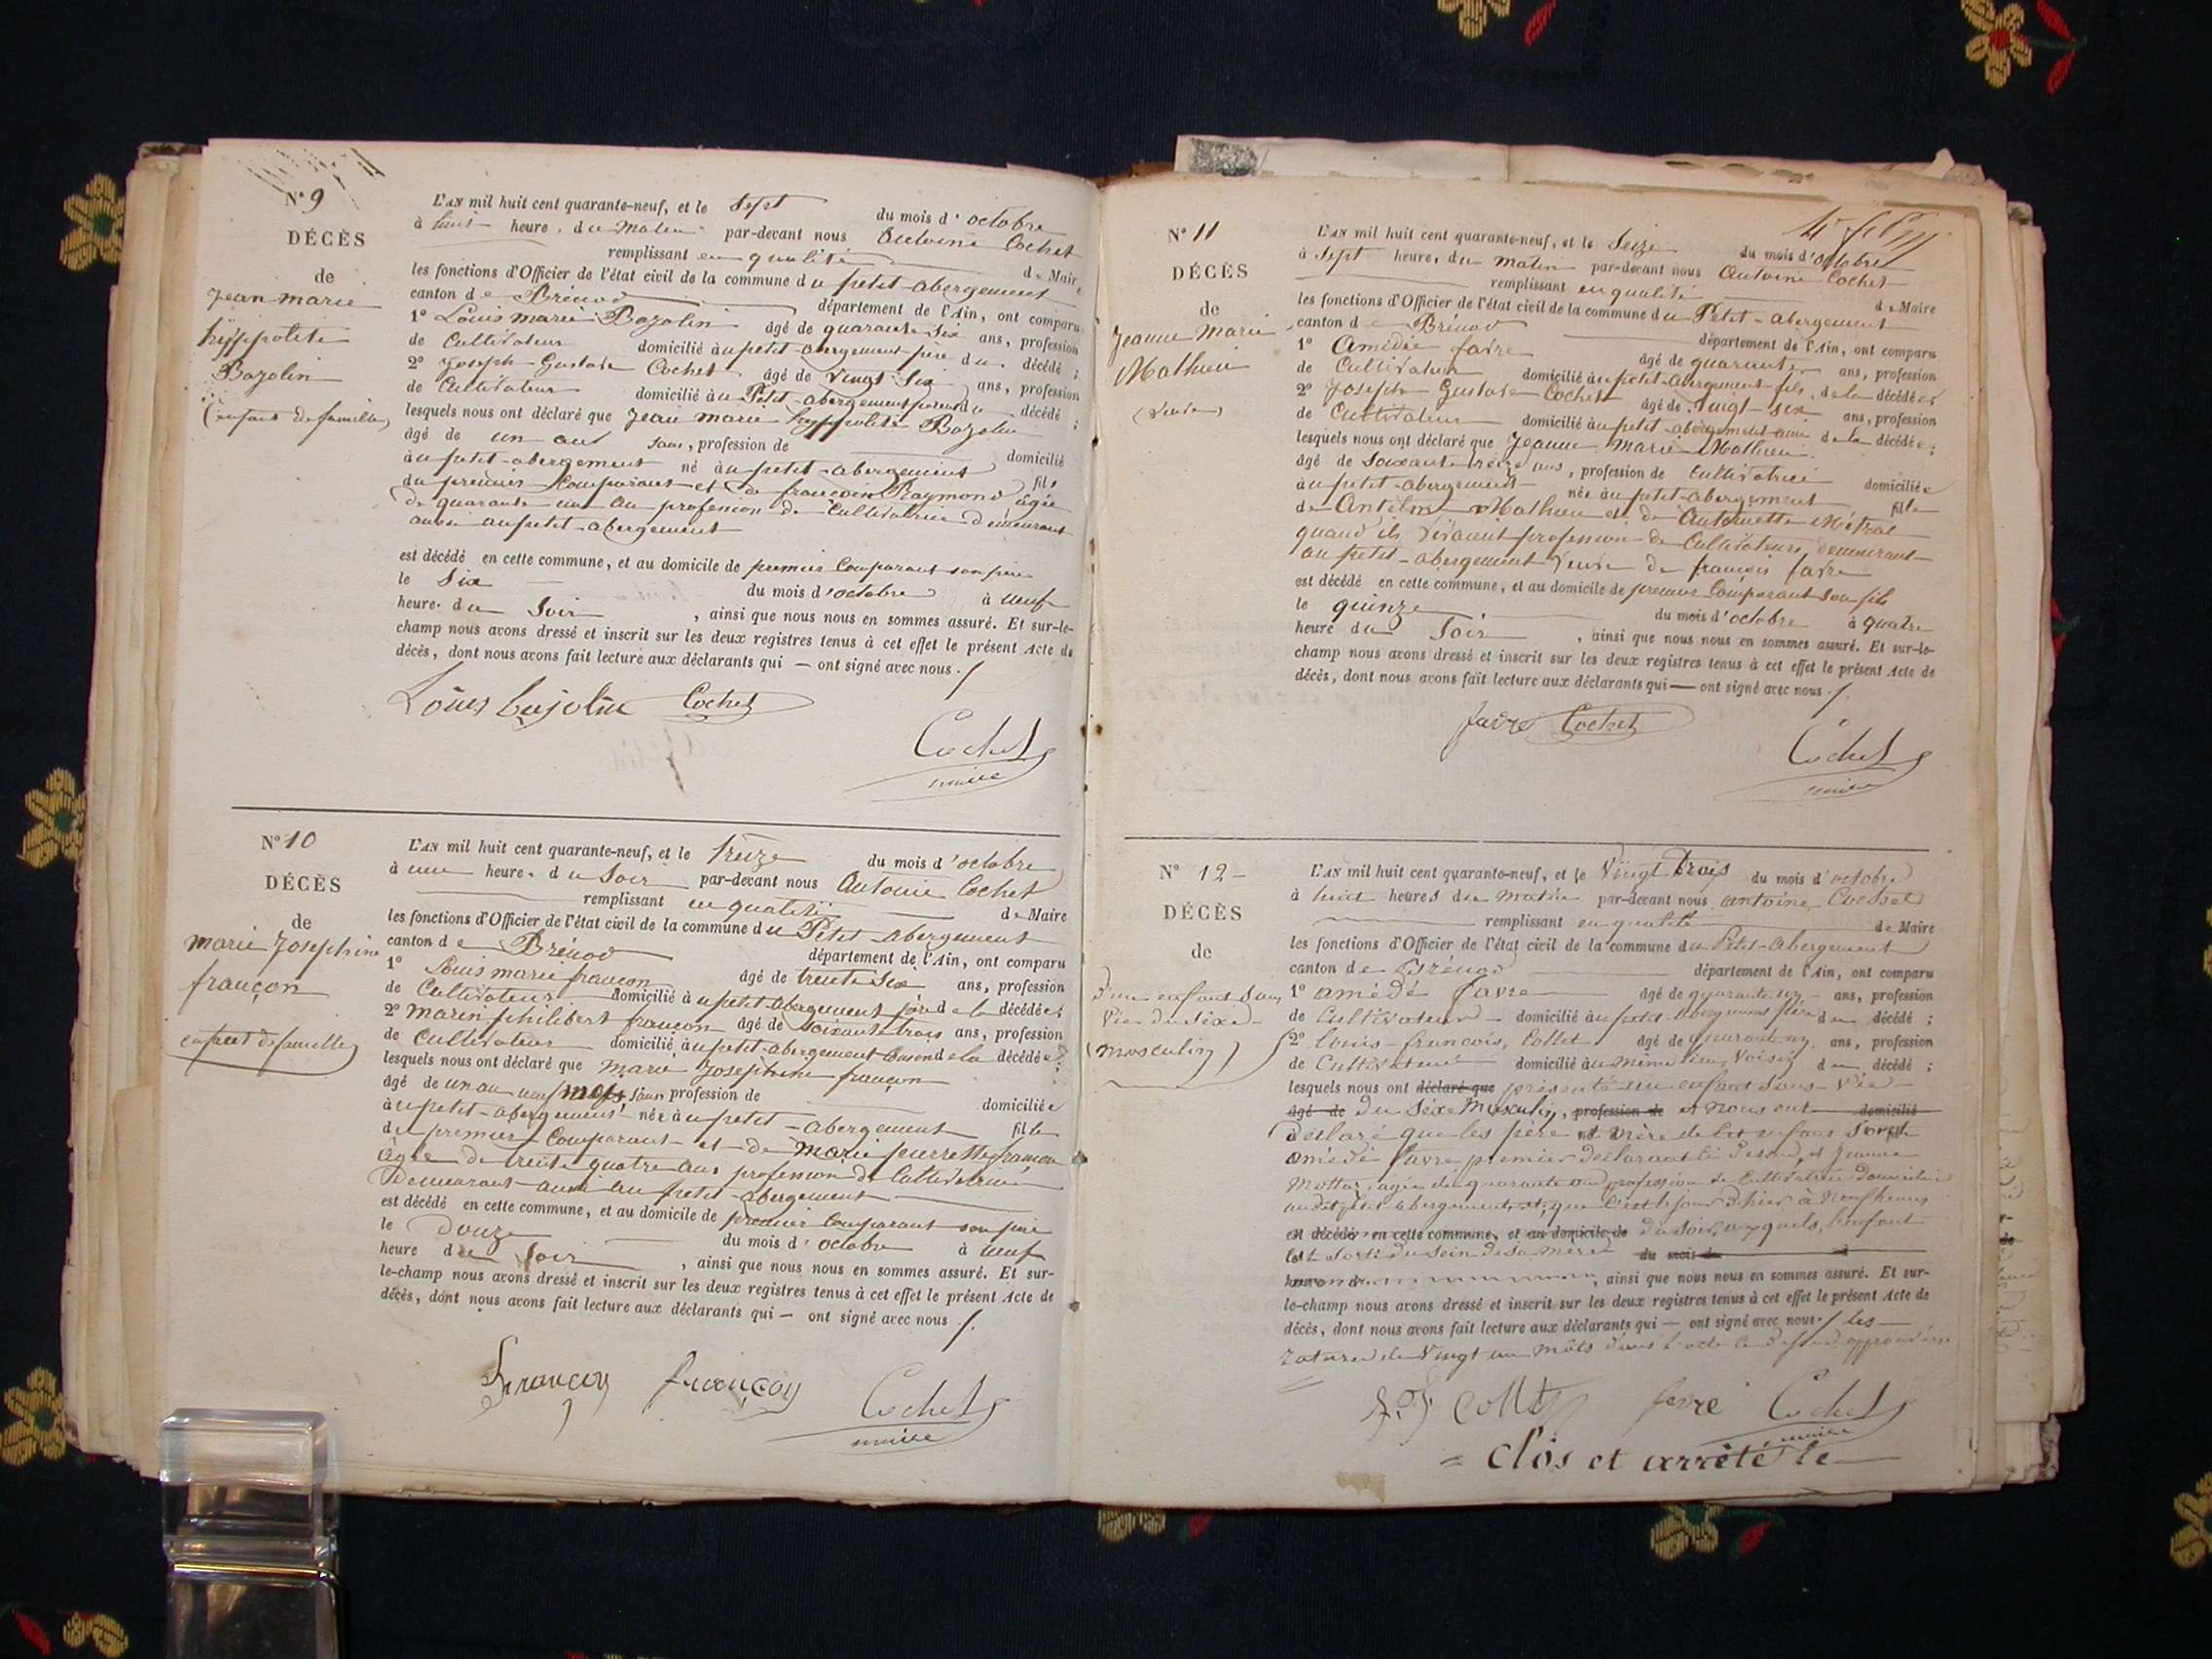 N° 9
DÉCÈS
de
Jean marie
hyppolite
Bozolin
(enfant de famille)
L'AN mil huit cent quarante-neuf, et le Sept du mois d'octobre
à huit heure. du Matin par-devant nous Antoine Cochet
remplissant en qualité de Maire
les fonctions d'Officier de l'état civil de la commune du petit-abergement
canton de Brénod département de l'Ain, ont comparu
1° Louis marie Bozolin âgé de quarante six ans, profession
de Cultivateur domicilié au petit-abergement père du décédé ;
2° Joseph Gustave Cochet âgé de vingt Six ans, profession
de Cultivateur domicilié au Petit-abergement du décédé ;
lesquels nous ont déclaré que Jean marie hyppolite Bozolin
âgé de un an sans, profession de domicilié
au petit-abergement né au petit-abergement fils
du premier Comparant et de françoise Raymond âgée
de quarante un an profession de Cultivatrice demeurant
aussi au petit-abergement
est décédé en cette commune, et au domicile de premier Comparant son père
le Six du mois d'octobre à neuf
heure. du Soir , ainsi que nous nous en sommes assuré. Et sur-le-
champ nous avons dressé et inscrit sur les deux registres tenus à cet effet le présent Acte de
décès, dont nous avons fait lecture aux déclarants qui — ont signé avec nous ./
Louis bojolin Cochet
Cochet
maire
N° 10
DÉCÈS
de
marie Josephine
françon
enfant de famille
L'AN mil huit cent quarante-neuf, et le treize du mois d'octobre
à une heure. du Soir par-devant nous Antoine Cochet
remplissant en qualité de Maire
les fonctions d'Officier de l'état civil de la commune du Petit-abergement
canton de Brénod département de l'Ain, ont comparu
1° Louis marie françon âgé de trente Six ans, profession
de Cultivateur domicilié au petit-abergement père de la décédée ;
2° marin philibert françon âgé de soixante trois ans, profession
de Cultivateur domicilié au petit-abergement de la décédée ;
lesquels nous ont déclaré que marie Josephine françon
âgé de un an neuf mois, sans profession de domiciliée
au petit-abergement née au petit-abergement fille
du premier Comparant et de marie pierrette françon
âgée de trente quatre ans profession de Cultivatrice
Demeurant aussi au petit-abergement
est décédé en cette commune, et au domicile de premier Comparant son père
le Douze du mois d'octobre à neuf
heure du Soir , ainsi que nous nous en sommes assuré. Et sur-
le-champ nous avons dressé et inscrit sur les deux registres tenus à cet effet le présent Acte de
décès, dont nous avons fait lecture aux déclarants qui — ont signé avec nous ./.
françon françon Cochet
maire
N° 11
DÉCÈS
de
Jeanne Marie
Mathieu
(veuve)
L'AN mil huit cent quarante-neuf, et le Seize du mois d'octobre
à Sept heure. du matin par-devant nous Antoine Cochet
remplissant en qualité de Maire
les fonctions d'Officier de l'état civil de la commune du Petit-abergement
canton de Brénod département de l'Ain, ont comparu
1° Amédée favre âgé de quarante ans, profession
de Cultivateur domicilié au petit-abergement fils de la décédée ;
2° Joseph Gustave Cochet âgé de vingt-six ans, profession
de Cultivateur domicilié au petit-abergement ami de la décédée ;
lesquels nous ont déclaré que Jeanne Marie Mathieu
âgé de Soixante treize ans, profession de Cultivatrice domiciliée
au petit-abergement née au petit-abergement fille
de Antelme Mathieu et de Antoinette Métral
quand ils vivaient profession de Cultivateurs, demeurant
au petit-abergement veuve de françois favre
est décédé en cette commune, et au domicile de premier Comparant son fils
le quinze du mois d'octobre à quatre
heure du Soir , ainsi que nous nous en sommes assuré. Et sur-le-
champ nous avons dressé et inscrit sur les deux registres tenus à cet effet le présent Acte de
décès, dont nous avons fait lecture aux déclarants qui — ont signé avec nous ./.
favre Cochet
Cochet
maire
N° 12
DÉCÈS
de
d'un enfant Sans
Vie du Séxe
(masculin)
L'AN mil huit cent quarante-neuf, et le Vingt trois du mois d'octobre
à huit heures du matin par-devant nous antoine
remplissant en qualité de Maire
les fonctions d'Officier de l'état civil de la commune du Petit-abergement
canton de Brénod département de l'Ain, ont comparu
1° amédé favre âgé de quarante un ans, profession
de Cultivateur domicilié au petit-abergement père du décédé ;
2° Louis-françois, Collet âgé de quarante un ans, profession
de Cultivateur domicilié au même lieu, voisin du décédé ;
lesquels nous ont déclaré que présenté un enfant Sans-Vie
âgé de du Séxe Masculin, profession de et nous ont domicilié
déclaré que les père et mère de enfant Sont
amédé favre premier déclarant , et Jeanne
âgée de quarante profession de Cultivatrice domicilié
petit abergement, et, que c'est le jour d'hier à neuf heures
est décédé en cette commune, et au domicile de du Soir, l'enfant
est Sorti du Sein de Sa mère du mois de à
heure d , ainsi que nous nous en sommes assuré. Et sur-
le-champ nous avons dressé et inscrit sur les deux registres tenus à cet effet le présent Acte de
décès, dont nous avons fait lecture aux déclarants qui — ont signé avec nous ./ les
rature de Vingt un mots dans l'acte
Collet favre Cochet
maire
= Clos et arrêté le